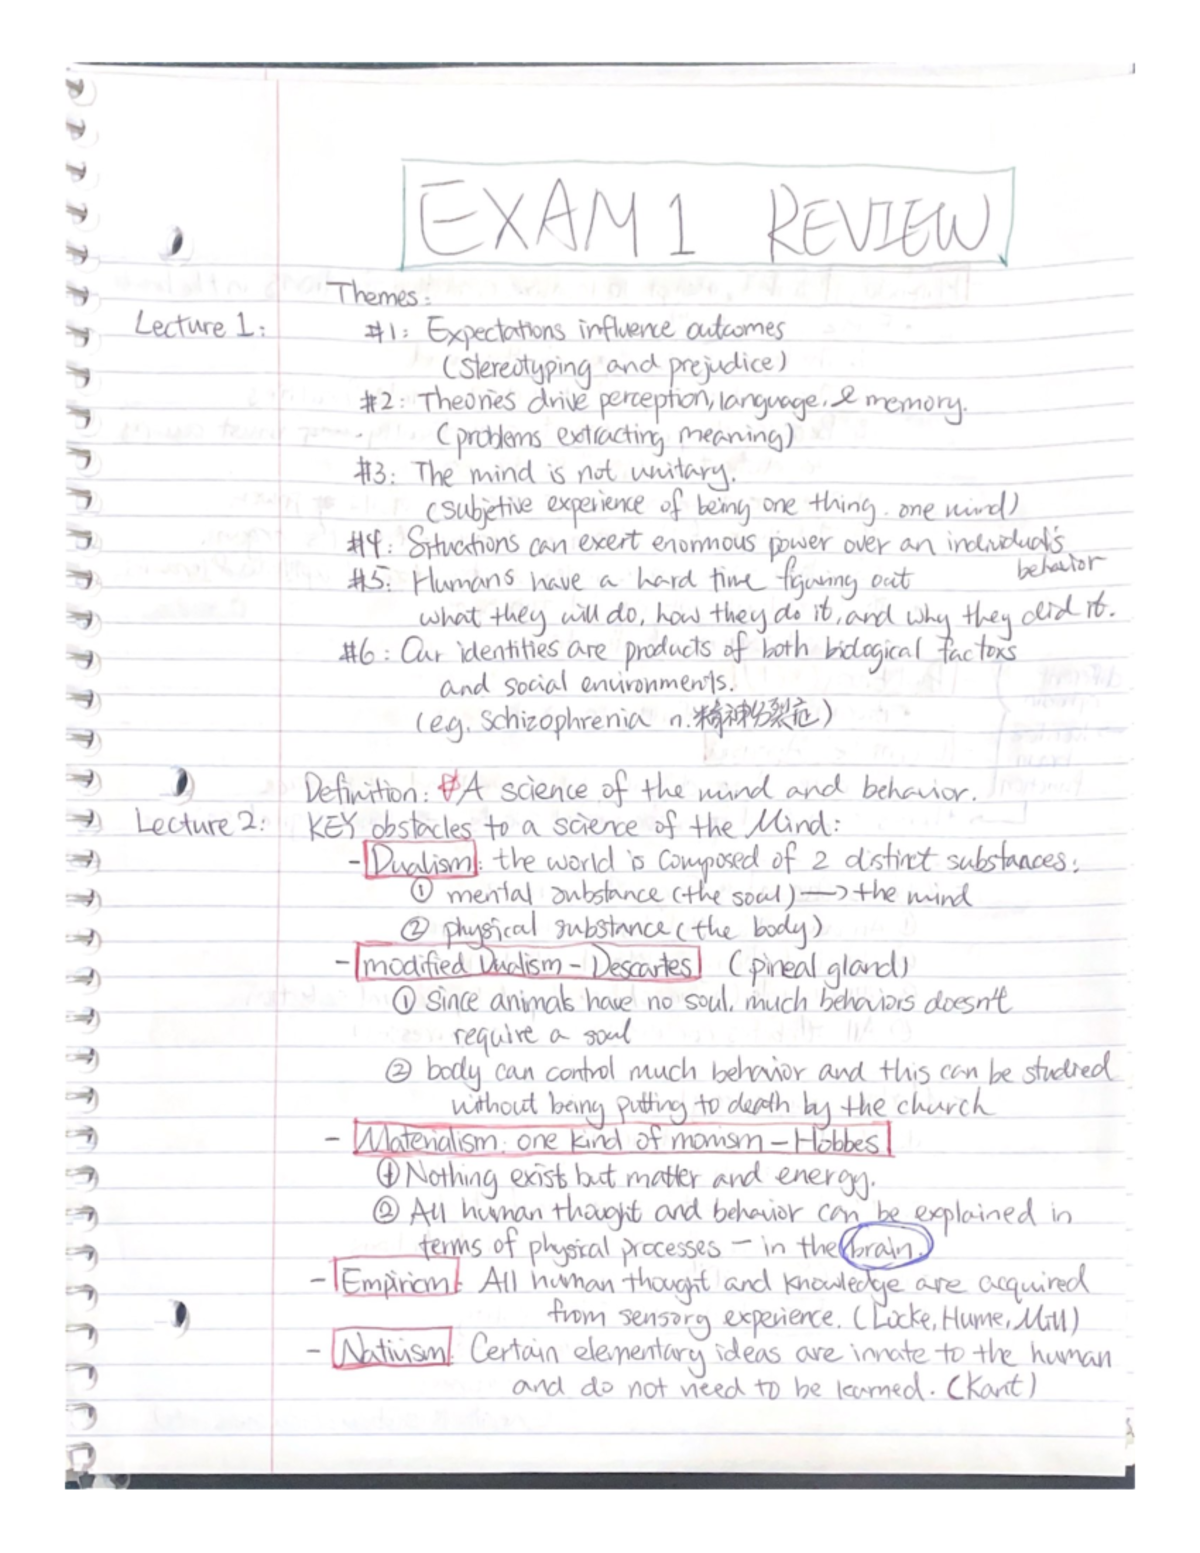 EXAM 1 REVIEW
Themes:
Lecture 1: #1: Expectations influence outcomes
(stereotyping and prejudice)
#2: Theories drive perception, language, & memory.
(problems extracting meaning)
#3: The mind is not unitary.
(subjetive experience of being one thing. one mind)
#4: Situations can exert enormous power over an individual's
behavior
#5: Humans have a hard time figuring out
what they will do, how they do it, and why they did it.
#6: Our identities are products of both biological factors
and social environments.
(e.g. Schizophrenia n.精神分裂症)
Definition: A science of the mind and behavior.
Lecture 2: KEY obstacles to a science of the Mind:
- Dualism: the world is composed of 2 distinct substances:
① mental substance (the soul) → the mind
② physical substance (the body)
- modified Dualism - Descartes (pineal gland)
① since animals have no soul, much behaviors doesn't
require a soul
② body can control much behavior and this can be studied
without being putting to death by the church
- Materialism: one kind of monism - Hobbes
① Nothing exist but matter and energy.
② All human thought and behavior can be explained in
terms of physical processes - in the brain.
- Empiricm: All human thought and knowledge are acquired
from sensory experience. (Locke, Hume, Mill)
- Nativism: Certain elementary ideas are innate to the human
and do not need to be learned. (Kant)